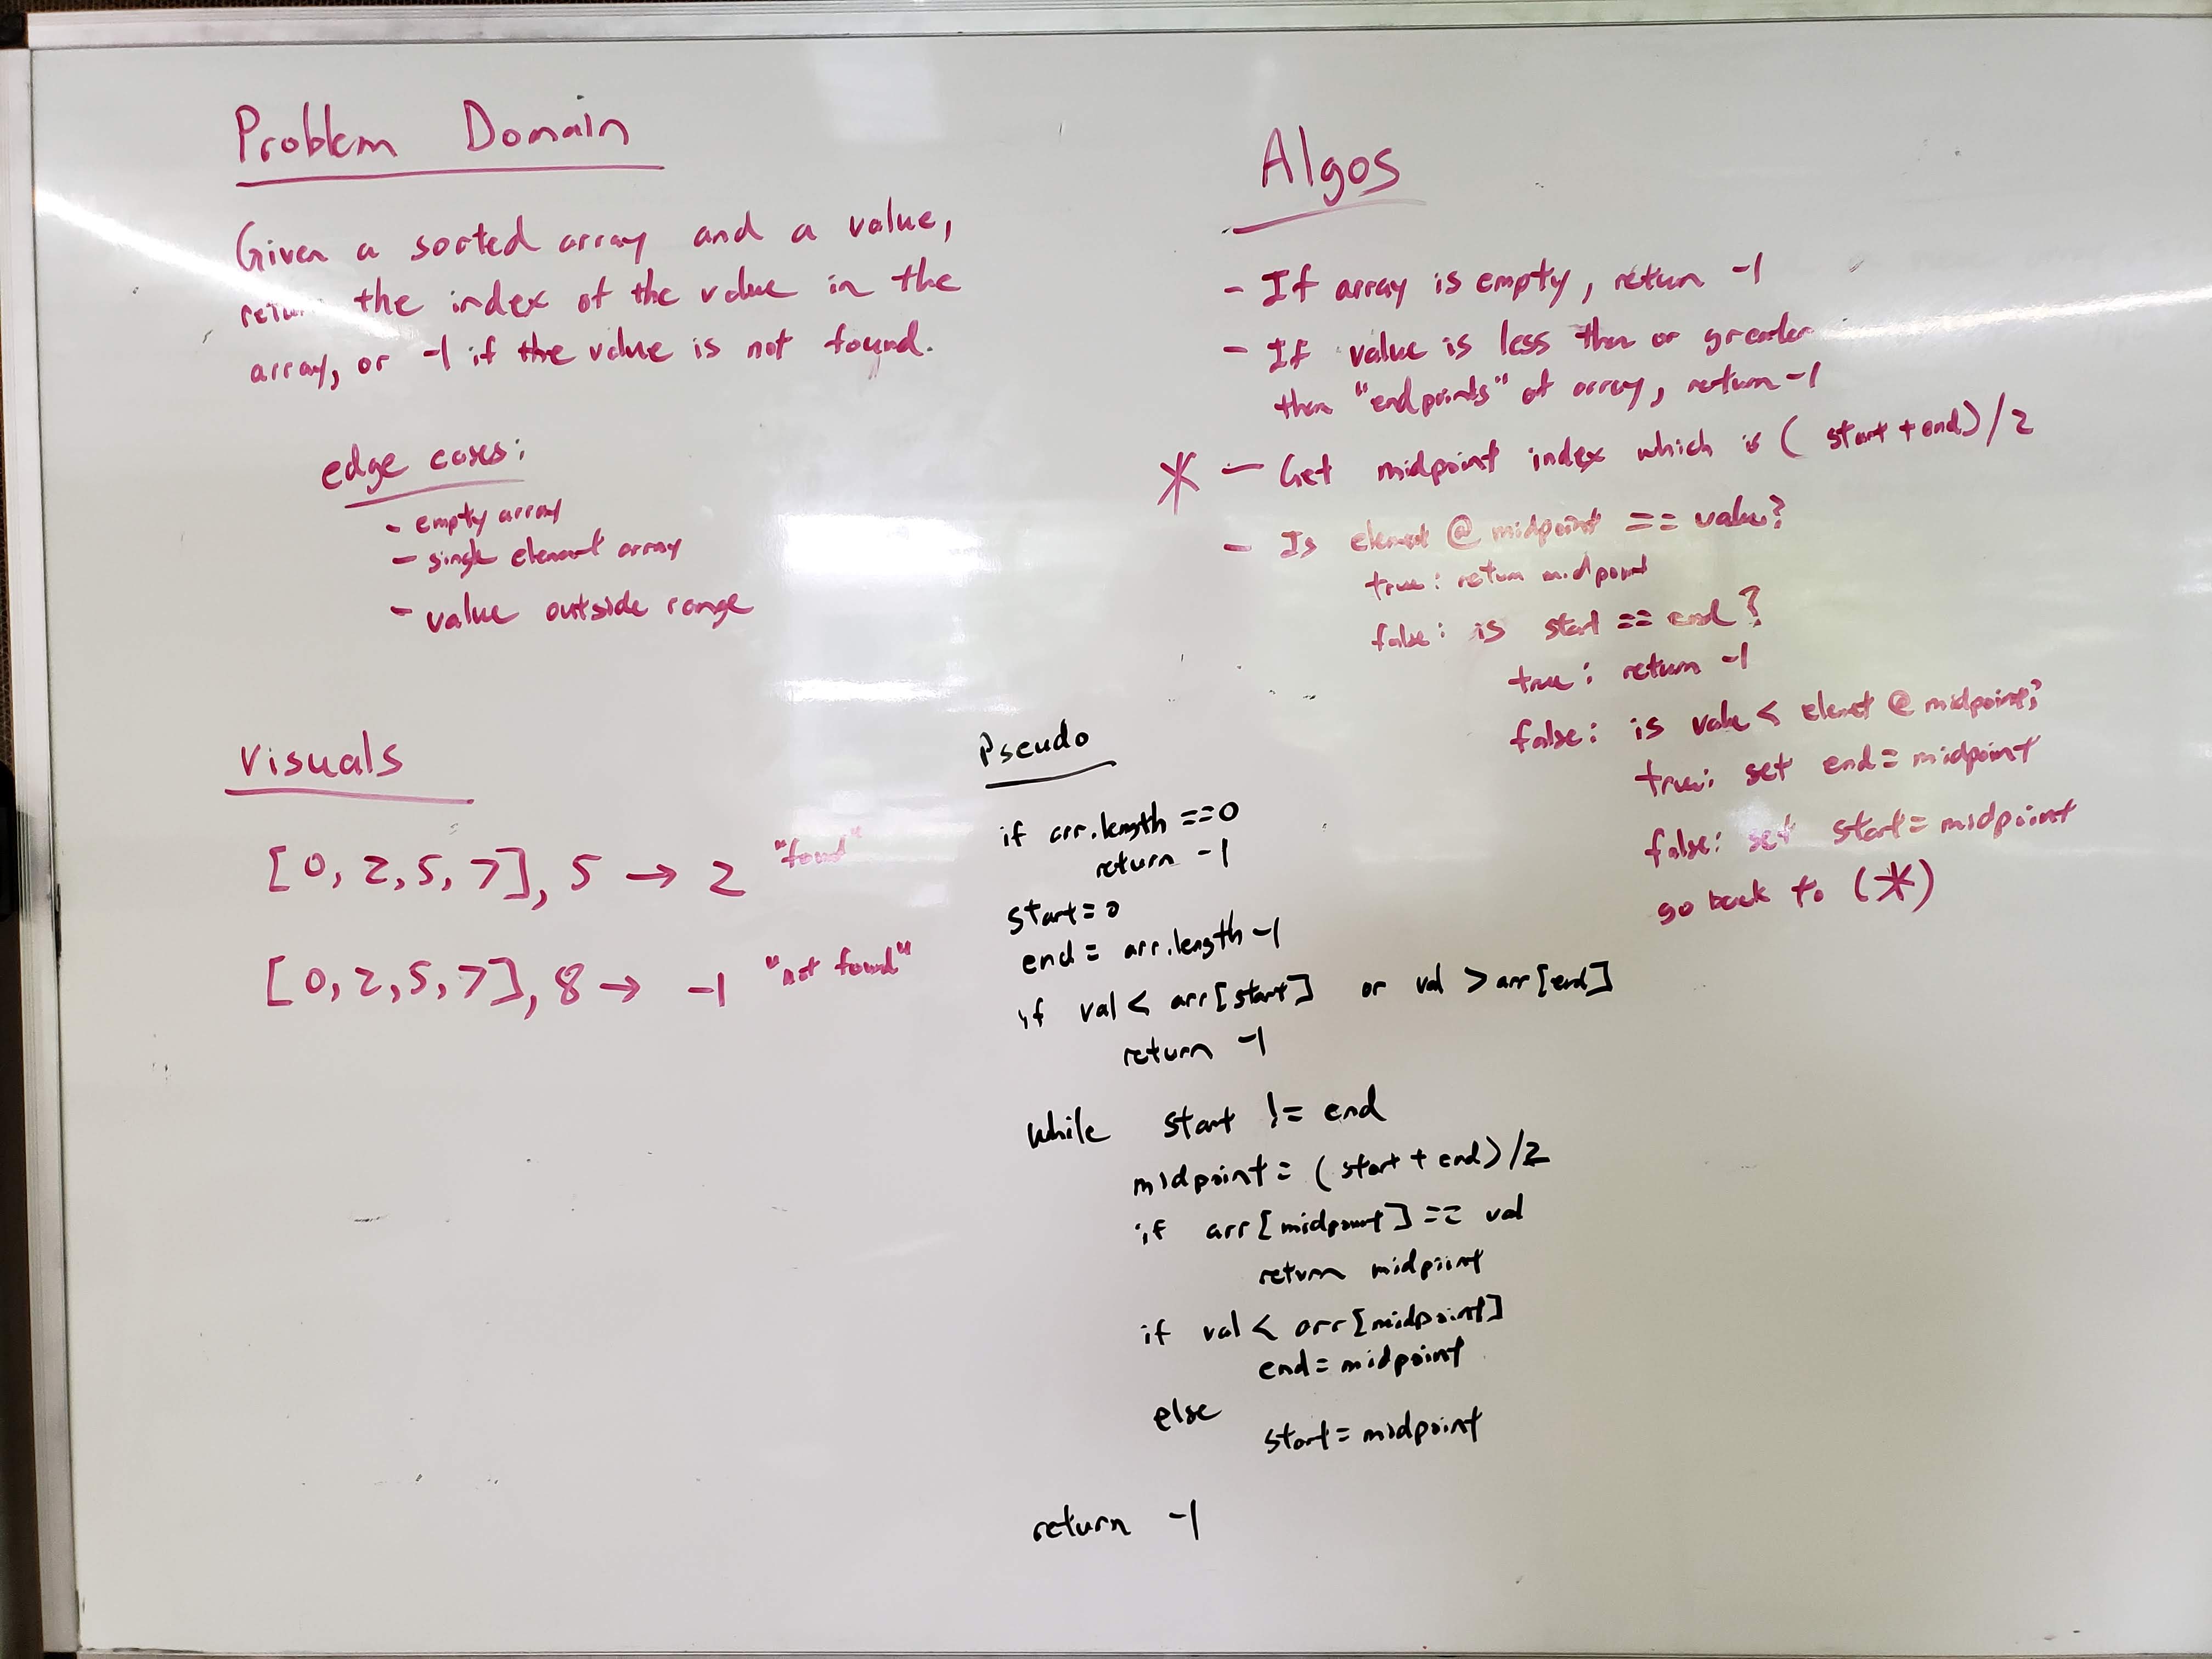 Problem Domain
Given a sorted array and a value,
return the index of the value in the
array, or -1 if the value is not found.
edge cases:
- empty array
- single element array
- value outside range
Visuals
[0, 2, 5, 7], 5 → 2 "found"
[0, 2, 5, 7], 8 → -1 "not found"
Algos
- If array is empty, return -1
- If value is less than or greater
than "endpoints" of array, return -1
* - Get midpoint index which is (start + end)/2
- Is element @ midpoint == value?
true: return midpoint
false: is start == end?
true: return -1
false: is value < elemet @ midpoint?
true: set end = midpoint
false: set start = midpoint
go back to (*)
Pseudo
if arr.length == 0
return -1
start = 0
end = arr.length -1
if val < arr[start] or val > arr[end]
return -1
while start != end
midpoint = (start + end)/2
if arr[midpoint] == val
return midpoint
if val < arr[midpoint]
end = midpoint
else
start = midpoint
return -1